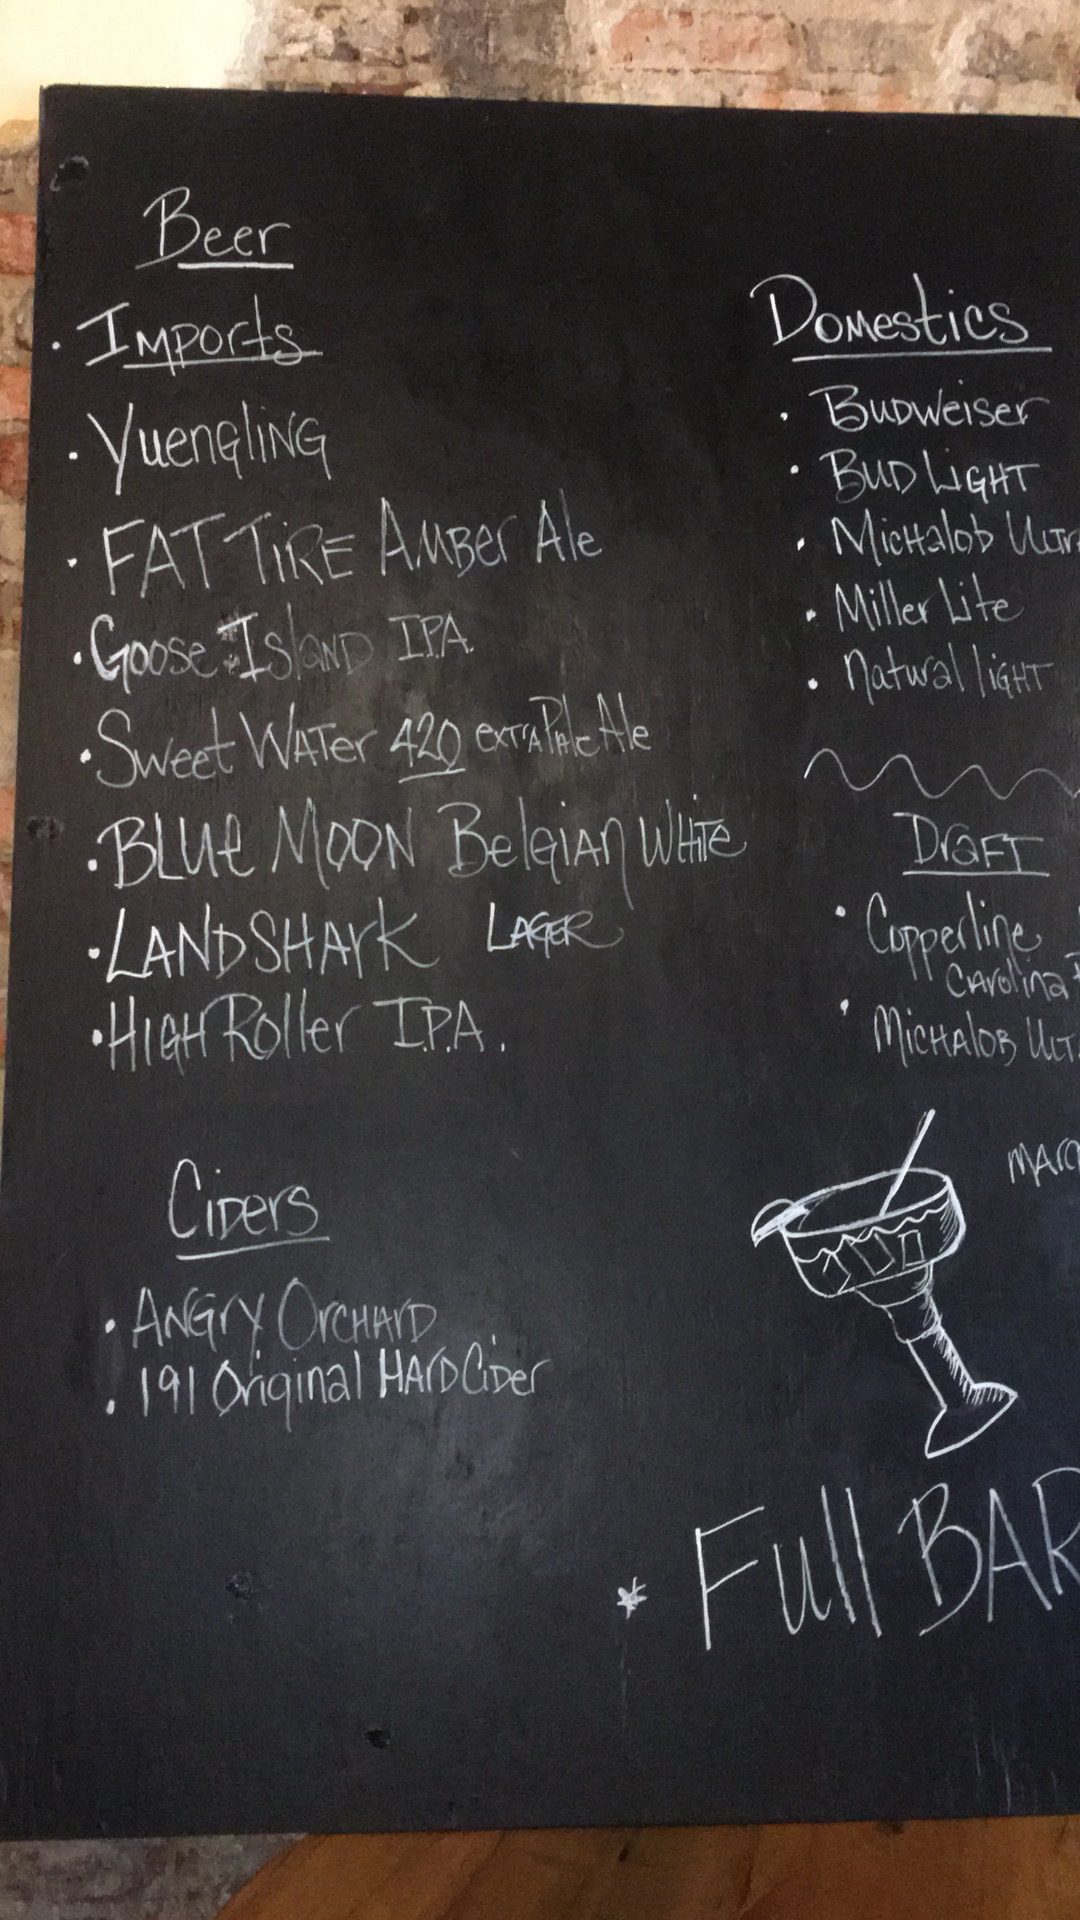 Beer
Imports
Yuengling
FAT TiRE Amber Ale
Goose Island I.P.A.
Sweet Water 420 extra Pale Ale
BLUe MOON Belgian White
LANDSHArK LAGER
HIGH Roller I.P.A.
Ciders
Angry Orchard
191 Original HArD Cider
Domestics
Budweiser
BUD LiGHT
Michalob
Miller Lite
natural light
Draft
Copperline
Carolina
Michalob
Full BAR